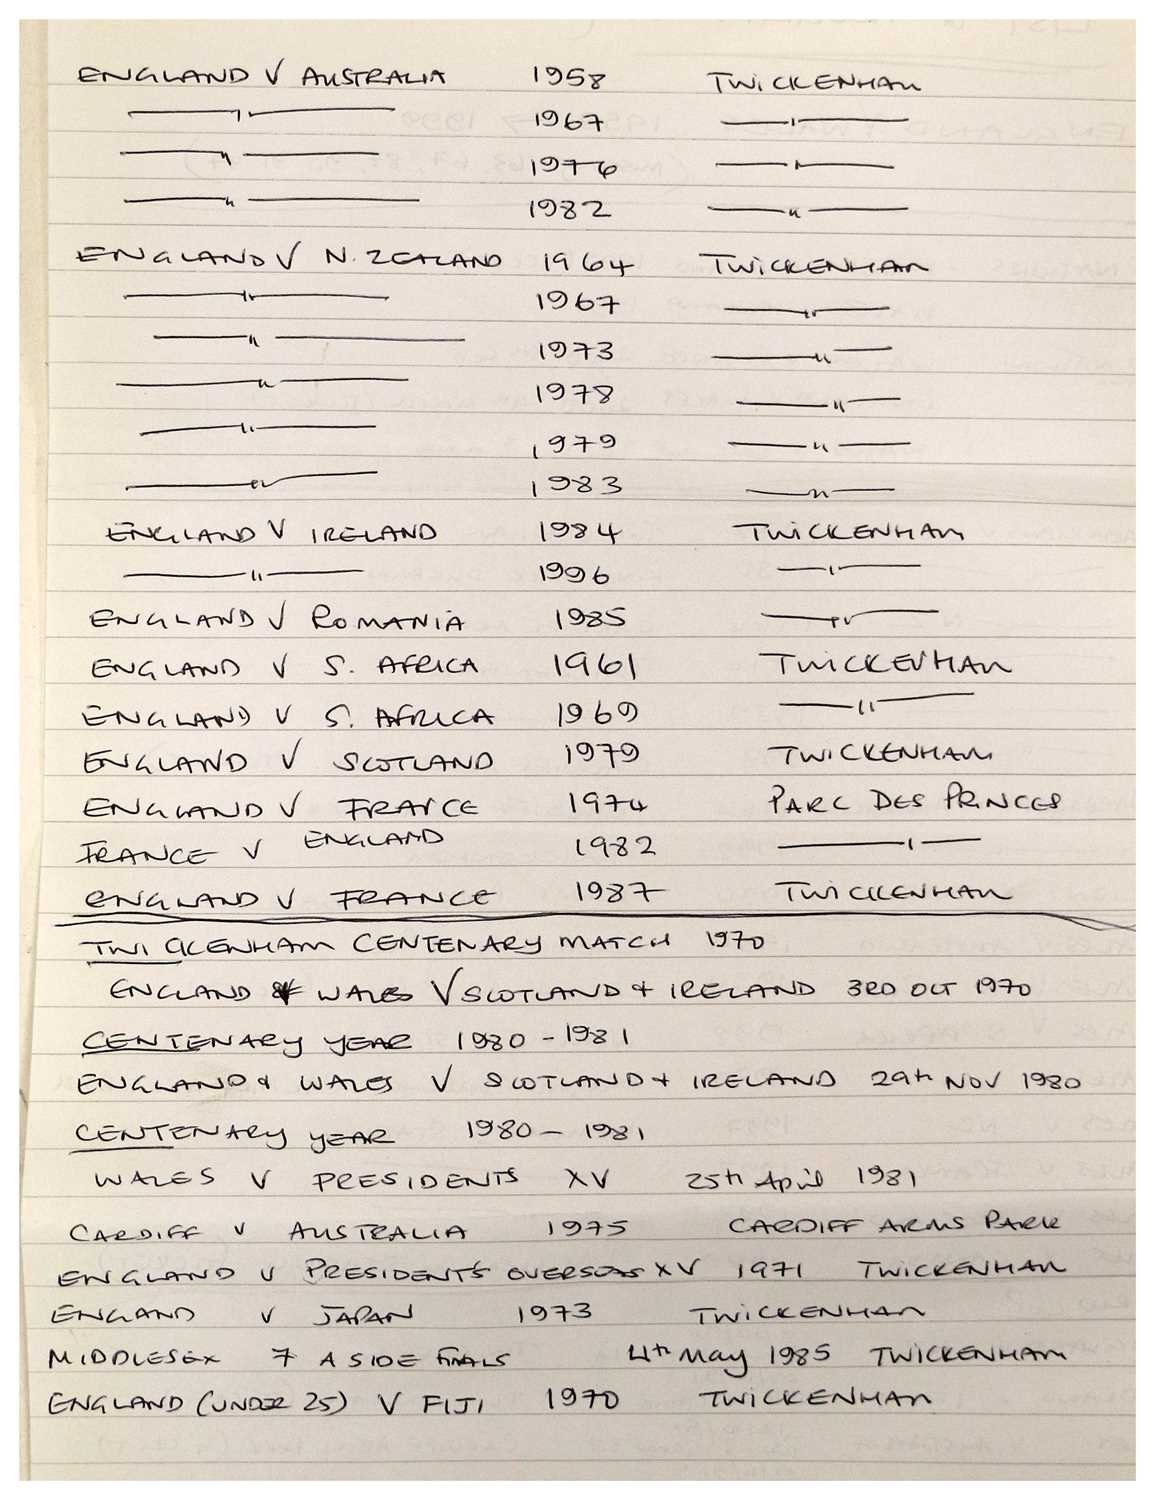 ENGLAND V AUSTRALIA 1958 TWICKENHAM
—〃— 1967 —〃—
—〃— 1976 —〃—
—〃— 1982 —〃—
ENGLAND V N. ZEALAND 1964 TWICKENHAM
—〃— 1967 —〃—
—〃— 1973 —〃—
—〃— 1978 —〃—
—〃— 1979 —〃—
—〃— 1983 —〃—
ENGLAND V IRELAND 1984 TWICKENHAM
—〃— 1996 —〃—
ENGLAND V ROMANIA 1985 —〃—
ENGLAND V S. AFRICA 1961 TWICKENHAM
ENGLAND V S. AFRICA 1969 —〃—
ENGLAND V SCOTLAND 1979 TWICKENHAM
ENGLAND V FRANCE 1974 PARC DES PRINCES
FRANCE V ENGLAND 1982 —〃—
ENGLAND V FRANCE 1987 TWICKENHAM
TWICKENHAM CENTENARY MATCH 1970
ENGLAND & WALES V SCOTLAND & IRELAND 3RD OCT 1970
CENTENARY YEAR 1980 - 1981
ENGLAND & WALES V SCOTLAND & IRELAND 29th NOV 1980
CENTENARY YEAR 1980 - 1981
WALES V PRESIDENTS XV 25th April 1981
CARDIFF V AUSTRALIA 1975 CARDIFF ARMS PARK
ENGLAND V PRESIDENTS OVERSEAS XV 1971 TWICKENHAM
ENGLAND V JAPAN 1973 TWICKENHAM
MIDDLESEX 7 A SIDE FINALS 4th May 1985 TWICKENHAM
ENGLAND (UNDER 25) V FIJI 1970 TWICKENHAM